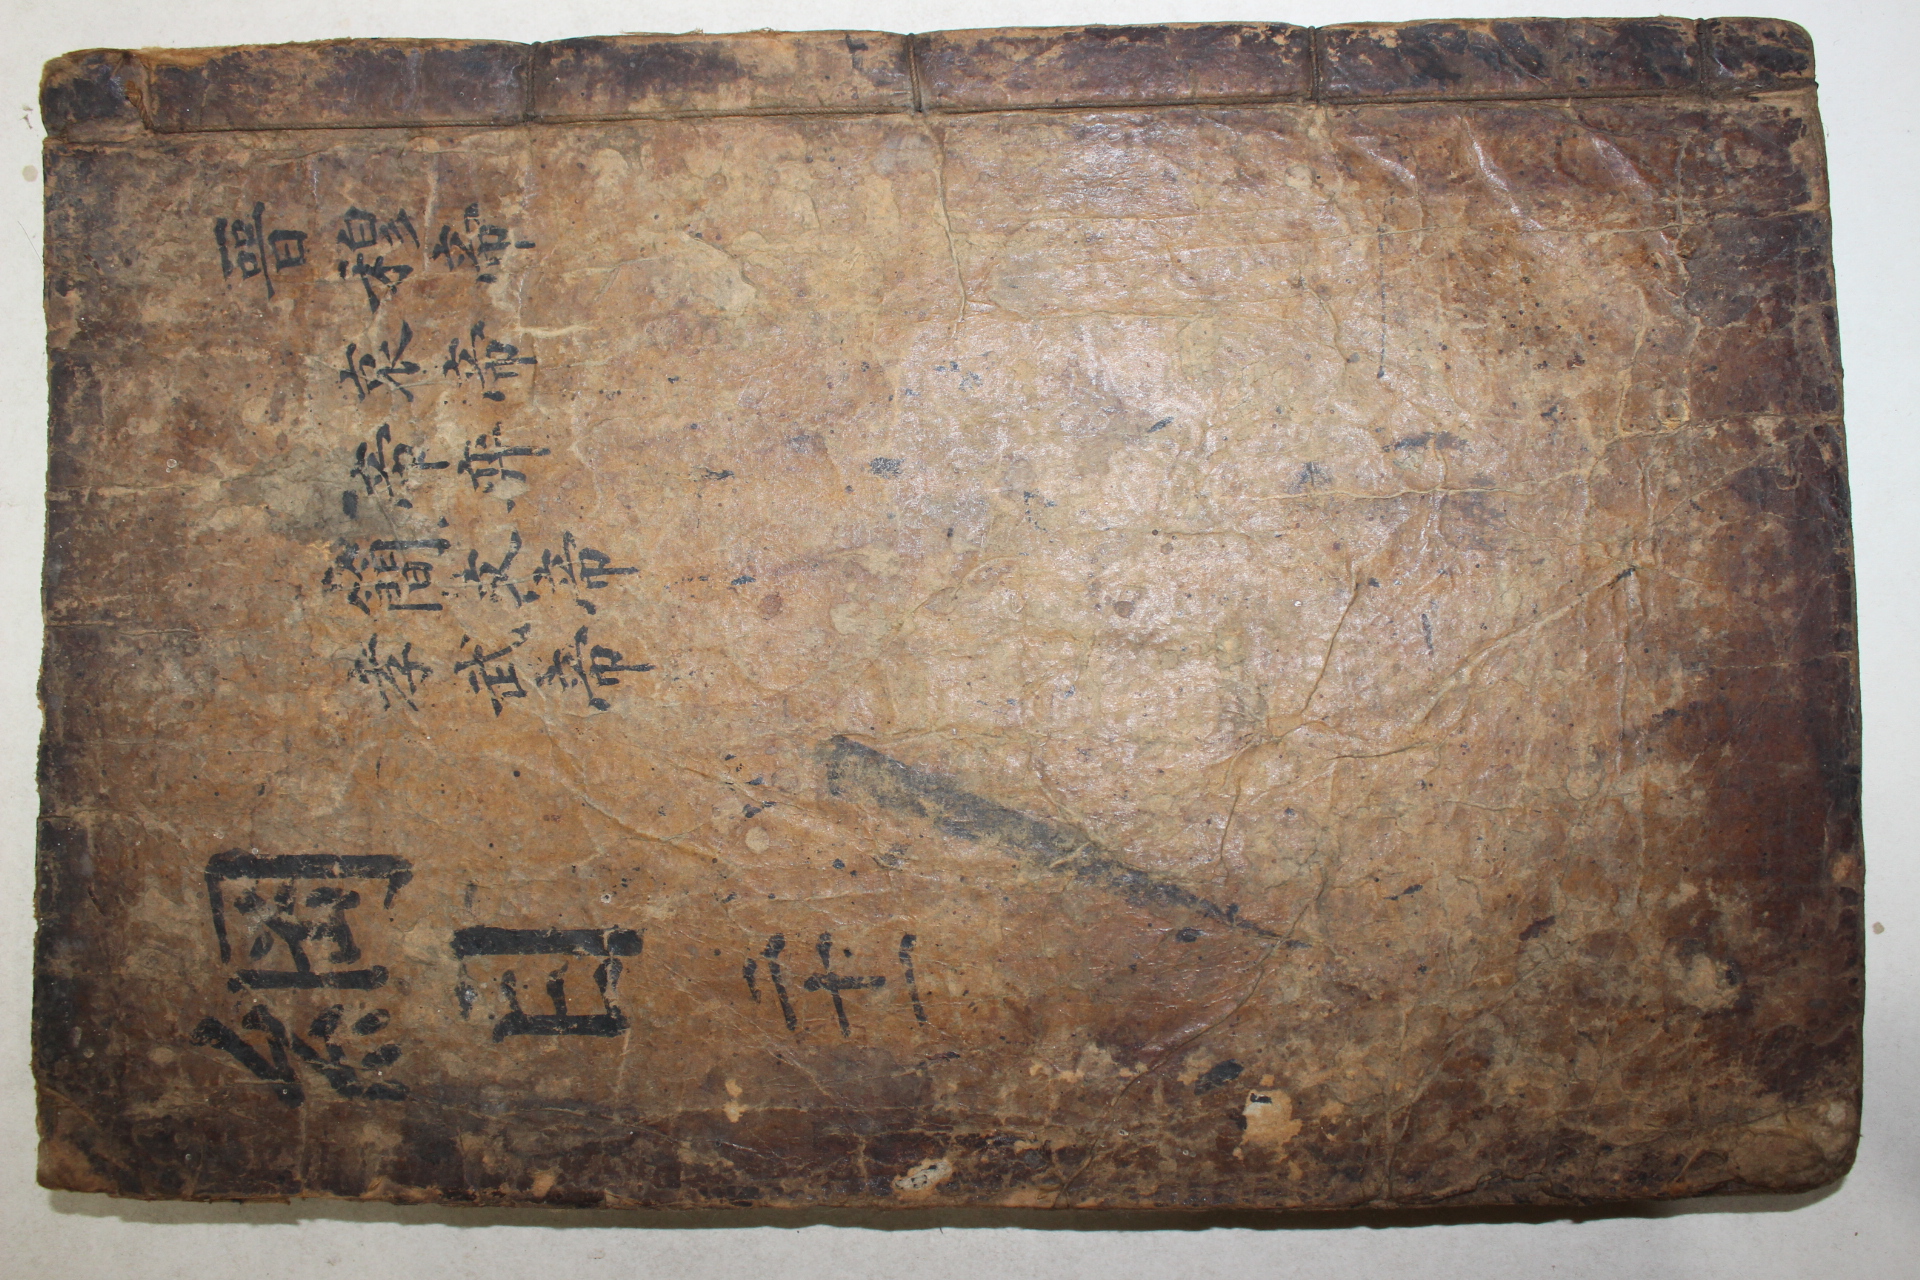 晉
穆帝
哀帝
帝弈
簡文帝
孝武帝
綱目 二十一